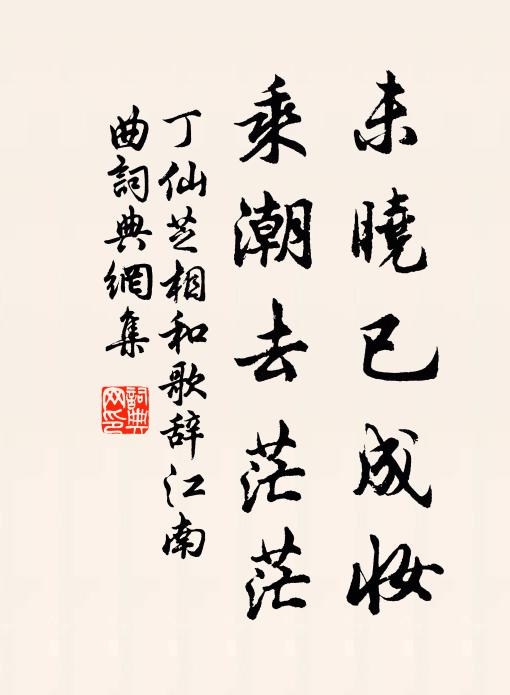 未曉已成妝
乘潮去茫茫
丁仙芝相和歌辞江南
曲詞典網集
詞典
网印